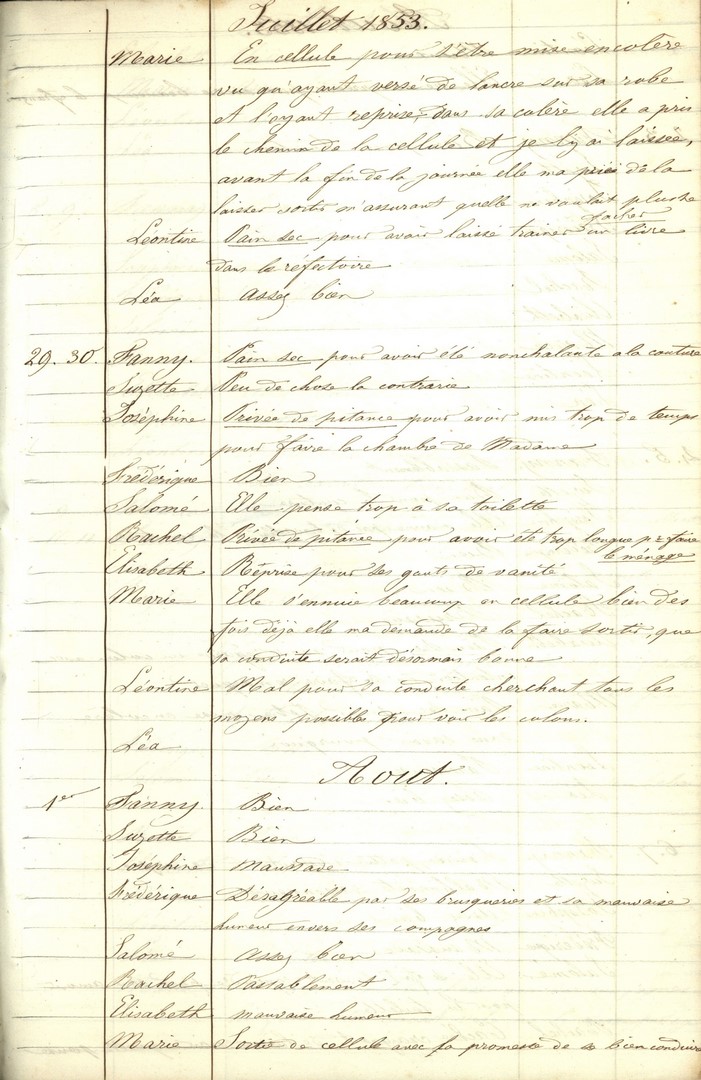 Juillet 1853.
Marie En cellule pour s'être mise encolère
vu qu'ayant versé de lancre sur sa robe
et l'ayant reprise, dans sa colère elle a pris
le chemin de la cellule et je l'y ai laissée,
avant la fin de la journée elle ma priée de la
laisser sortir m'assurant quelle ne voulait plus se
facher
Léontine Pain sec pour avoir laissé trainer un livre
dans le réfectoire
Léa Assez bien
29. 30. Fanny. Pain sec pour avoir été nonchalante a la couture
Suzette Peu de chose la contrarie
Joséphine Privée de pitance pour avoir mis trop de temps
pour faire la chambre de Madame
Frédérique Bien
Salomé Elle pense trop à sa toilette
Rachel Privée de pitance pour avoir été trop longue pr faire
le ménage
Elisabeth Réprise pour ses gouts de vanité
Marie Elle s'ennuie beaucoup en cellule bien des
fois déjà elle ma demandé de la faire sortir, que
sa conduite serait désormais bonne
Léontine Mal pour sa conduite cherchant tous les
moyens possibles pour voir les colons.
Léa
Aout.
1er Fanny. Bien
Suzette Bien
Joséphine Maussade
Frédérique Désagréable par ses brusqueries et sa mauvaise
humeur envers ses compagnes
Salomé Assez bien
Rachel Passablement
Elisabeth mauvaise humeur
Marie Sortie de cellule avec la promesse de se bien conduire